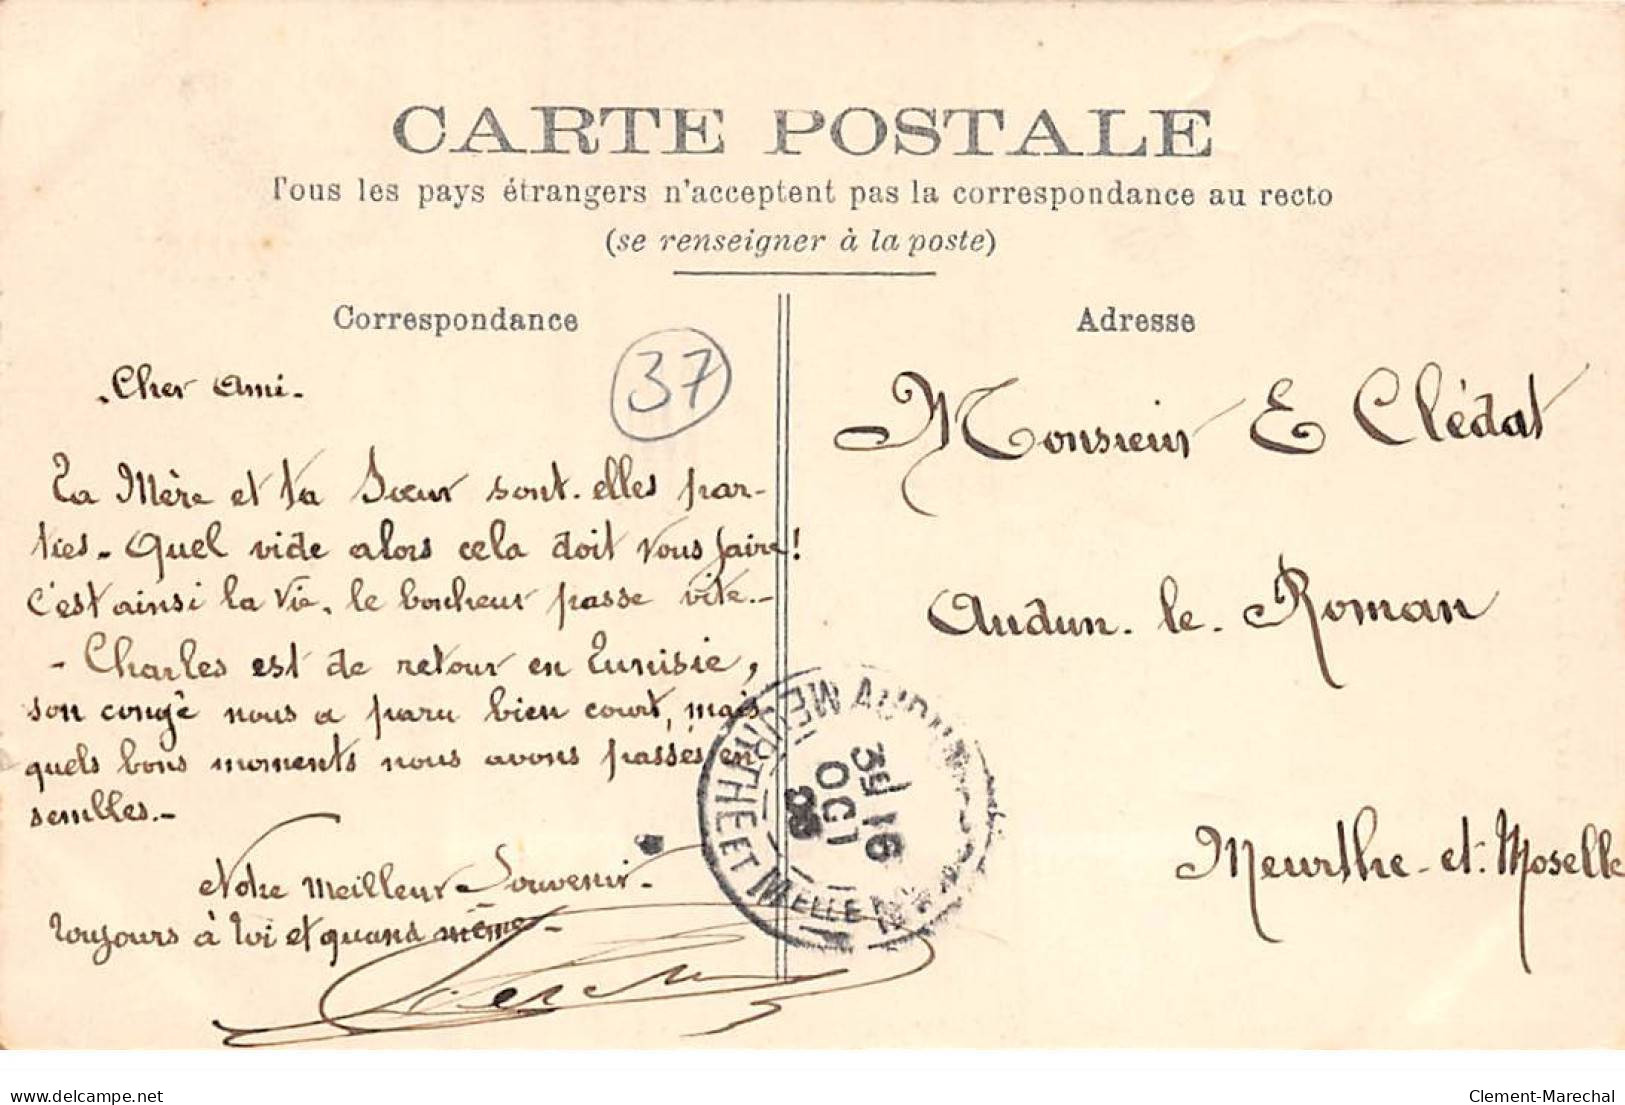 CARTE POSTALE
Tous les pays étrangers n'acceptent pas la correspondance au recto
(se renseigner à la poste)
Correspondance
Adresse
37
Cher Ami.
Ta Mère et ta Sœur sont-elles par-
ties. Quel vide alors cela doit vous faire!
C'est ainsi la vie, le bonheur passe vite.-
- Charles est de retour en Tunisie,
son congé nous a paru bien court, mais
quels bons moments nous avons passés en
sembles.-
Notre meilleur Souvenir.
Toujours à toi et quand même-
Monsieur E Clédat
Audun-le-Roman
Meurthe-et-Moselle
AUDUN
MEURTHE ET MELLE
3E 16
OCT
08
delcampe.net
Clement-Marechal